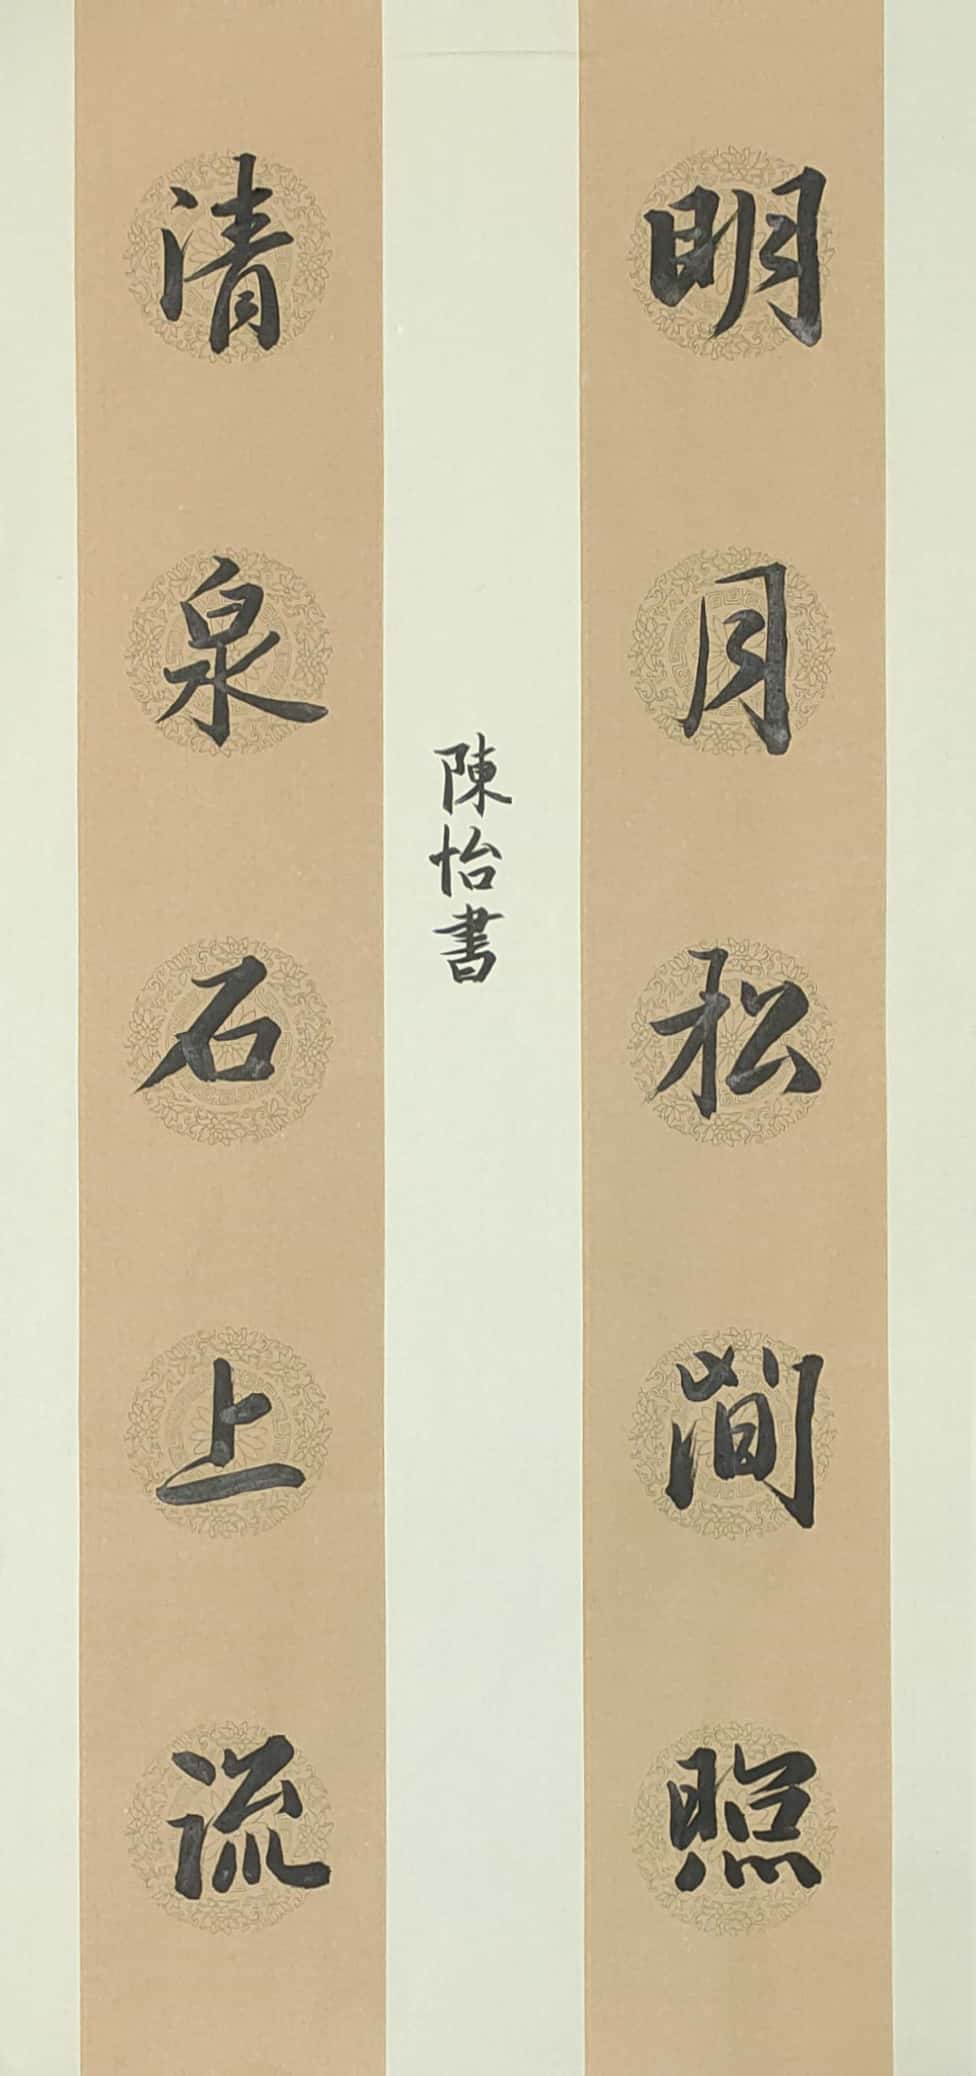 明月松間照
清泉石上流
陳怡書